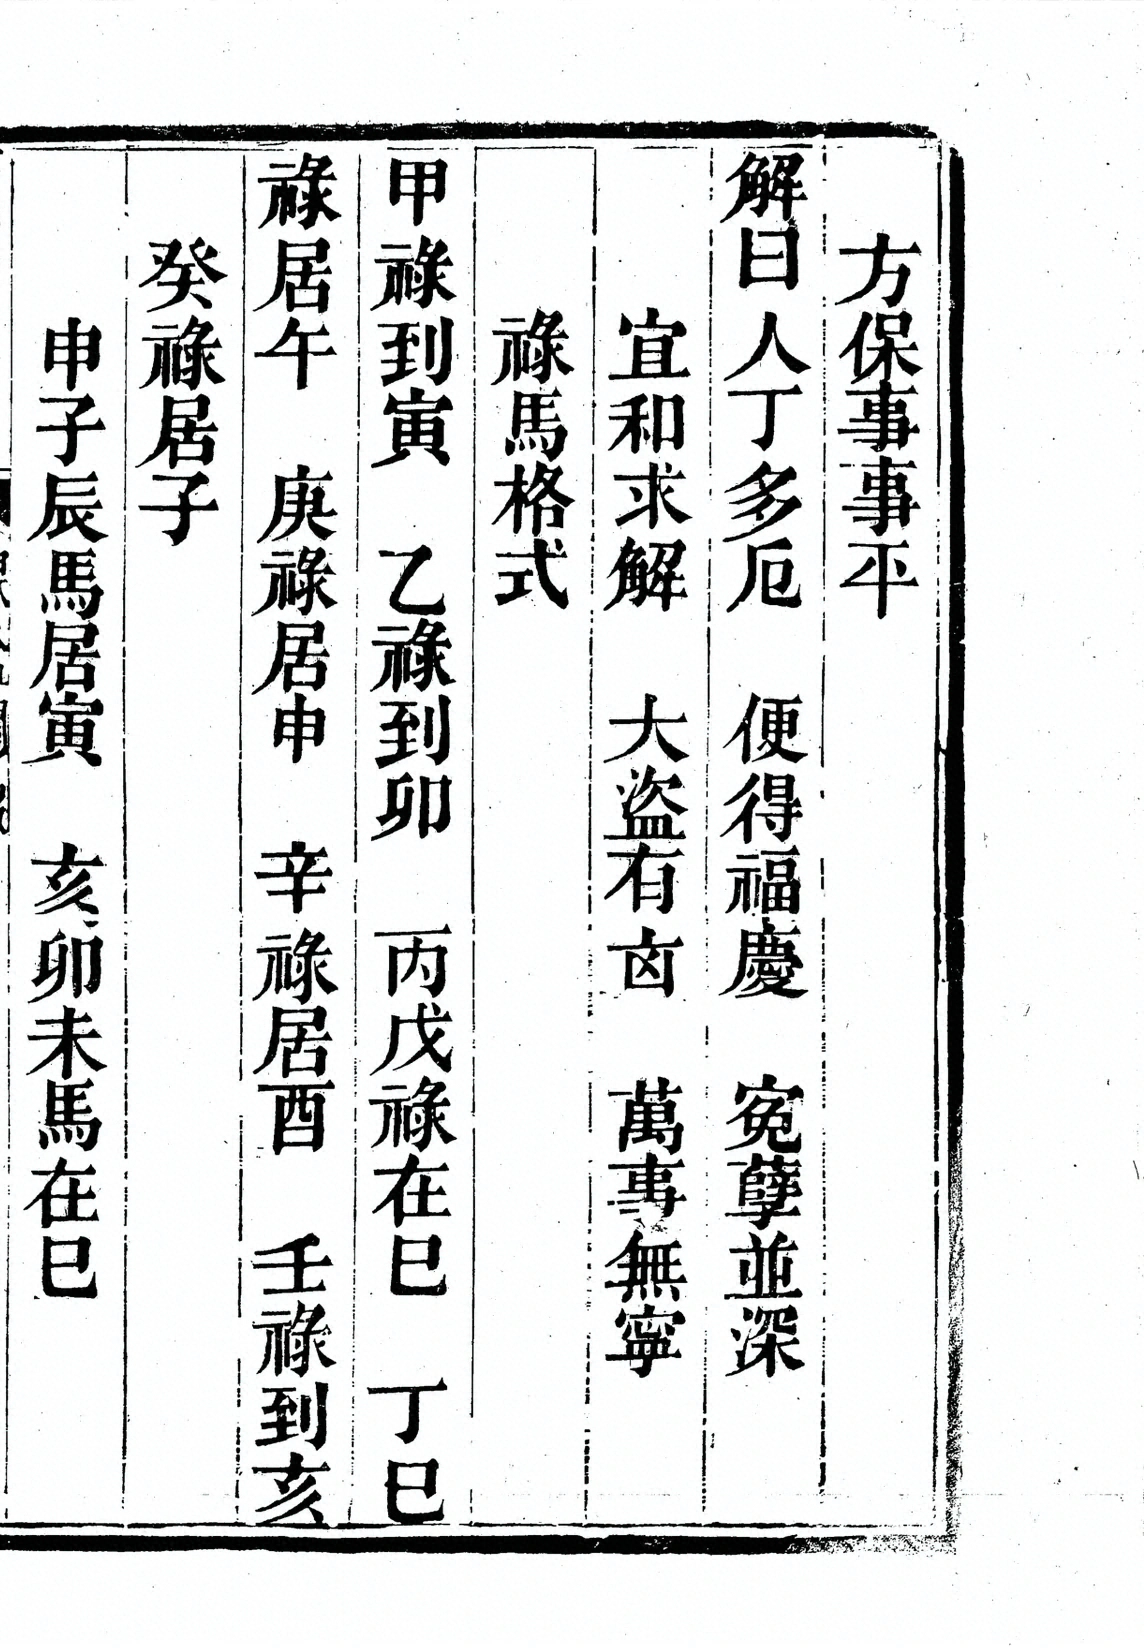 方保事事平
解曰人丁多厄　便得福慶　寃孽並深
宜和求解　大盜有㐫　萬事無寧
祿馬格式
甲祿到寅　乙祿到卯　丙戊祿在巳　丁巳
祿居午　庚祿居申　辛祿居酉　壬祿到亥
癸祿居子
申子辰馬居寅　亥卯未馬在巳